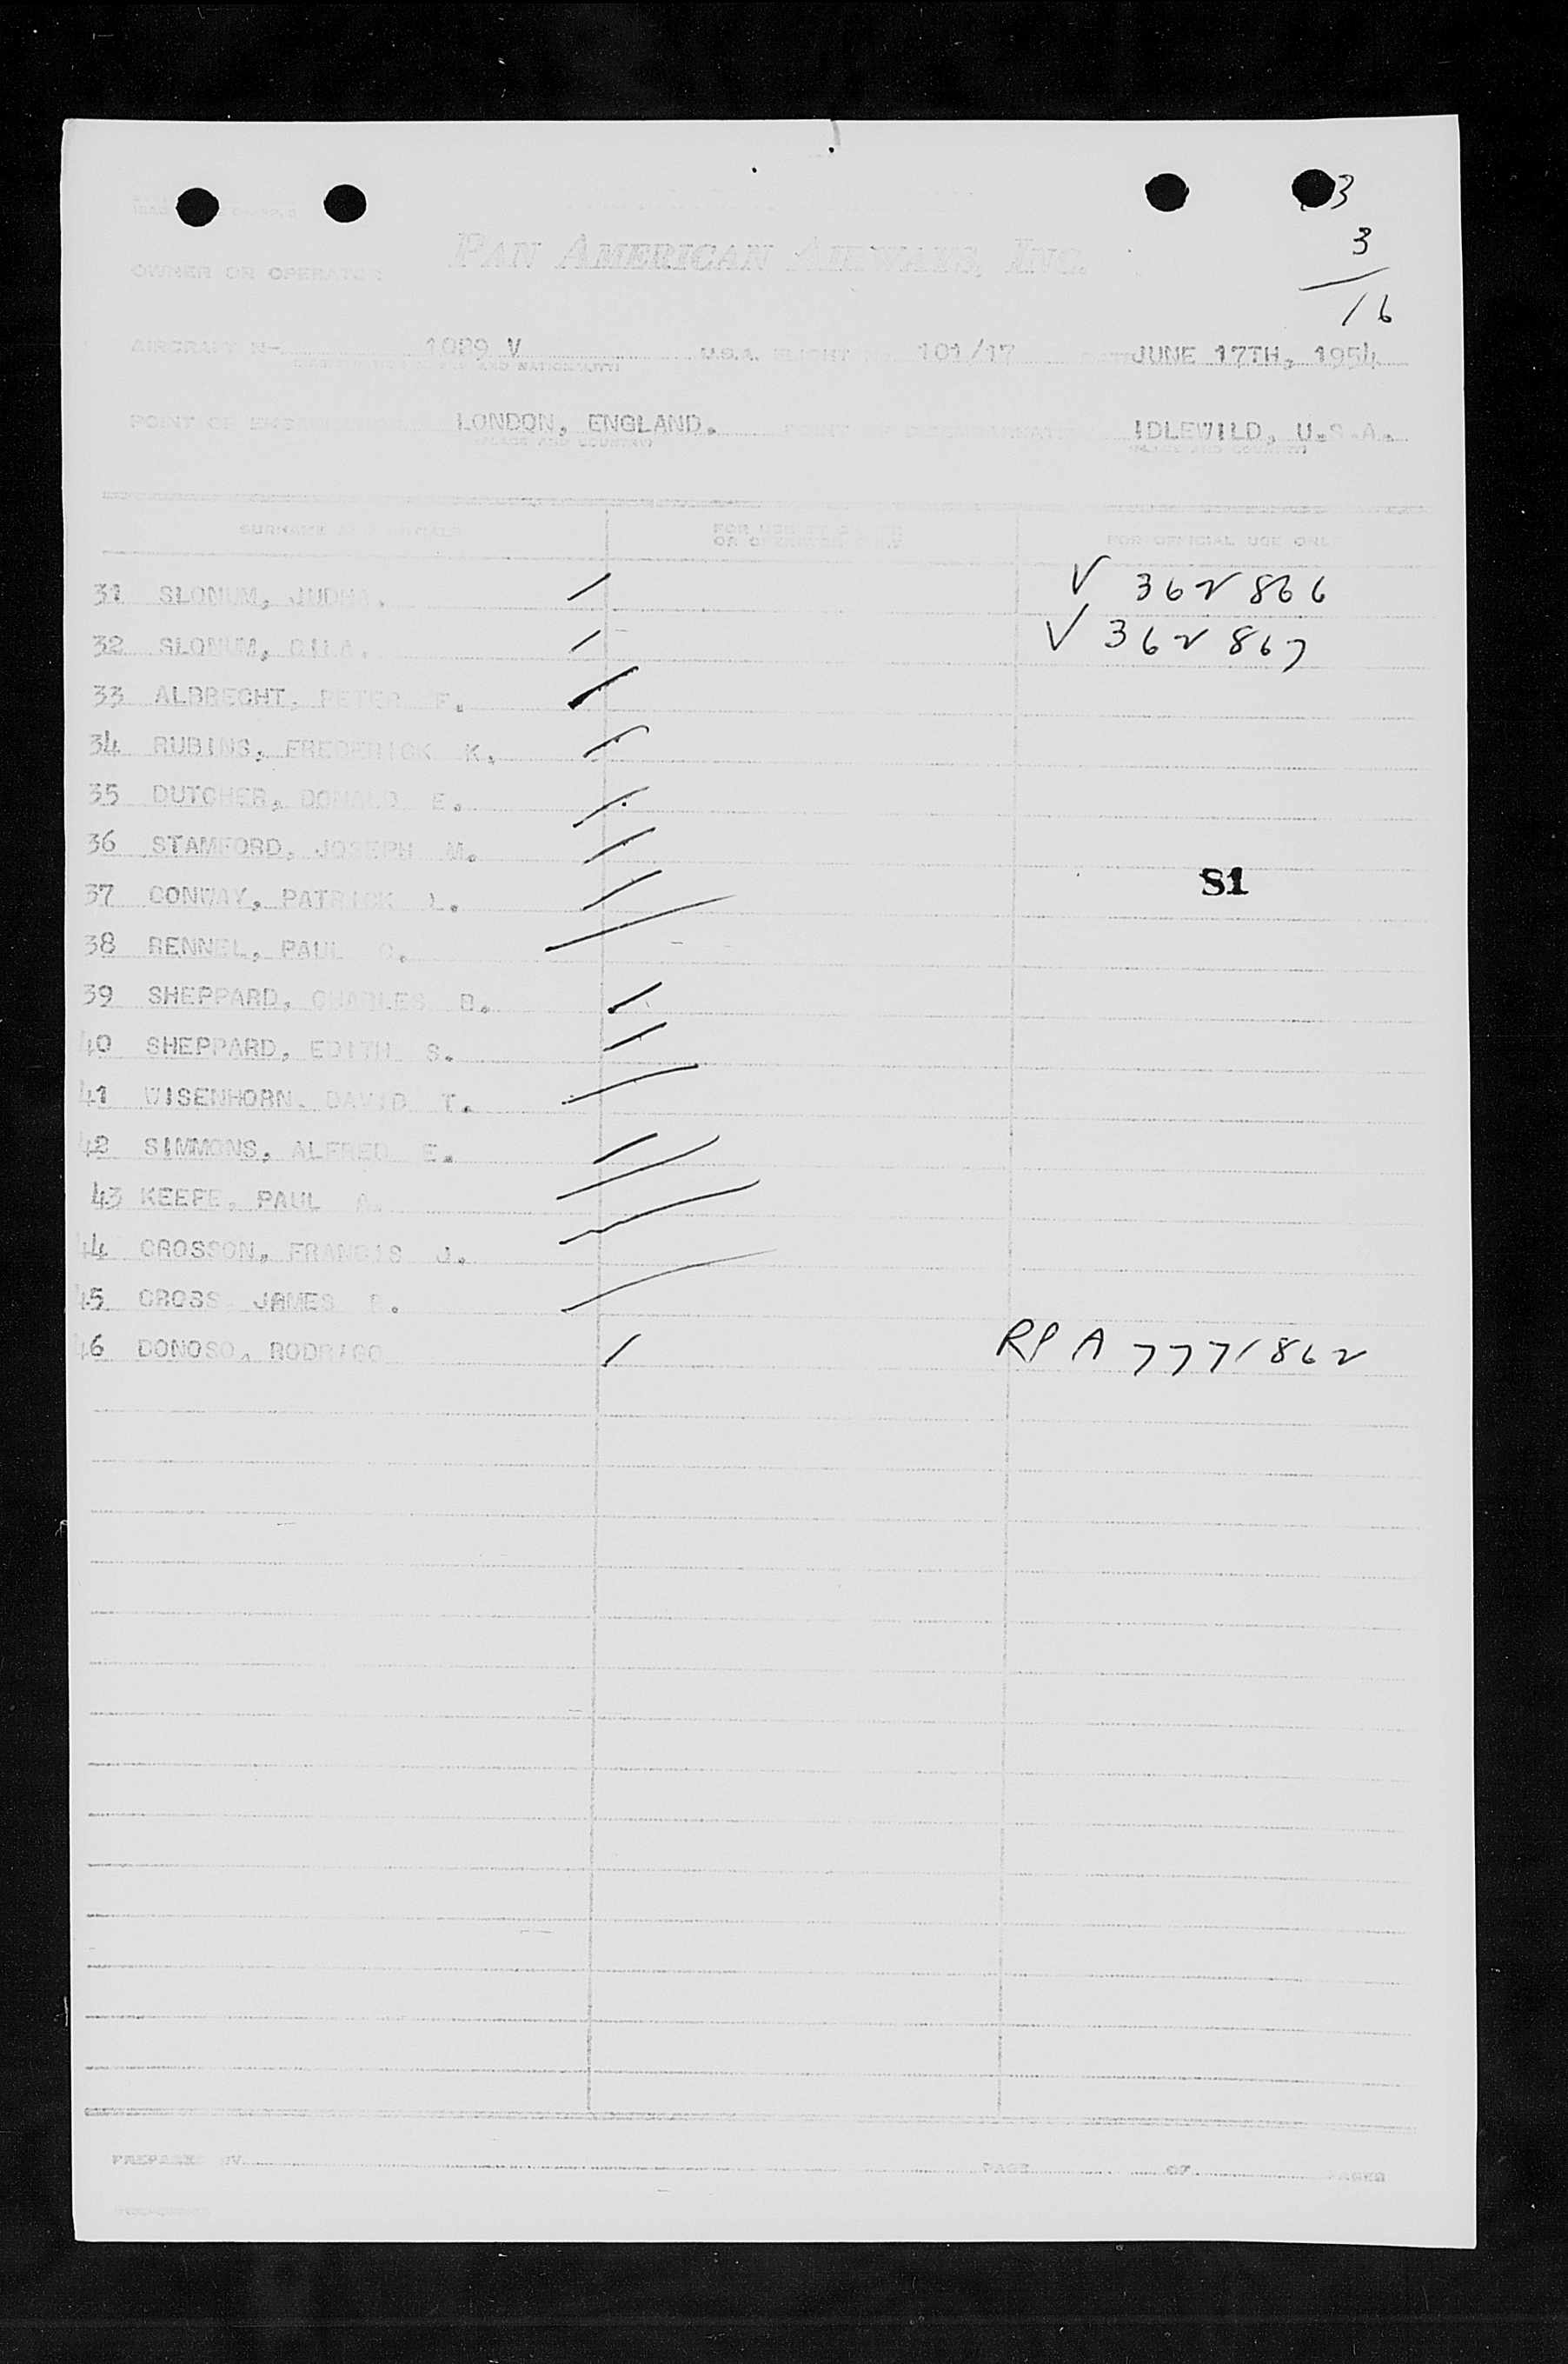 3
3
16
PAN AMERICAN AIRWAYS, INC.
OWNER OR OPERATOR
AIRCRAFT N- 1089 V U.S.A. FLIGHT 101/17 JUNE 17TH, 1954
POINT OF LONDON, ENGLAND. IDLEWILD, U.S.A.
(PLACE AND COUNTRY) (PLACE AND COUNTRY)
SURNAME FOR USE OR OPERATOR ONLY FOR OFFICIAL USE ONLY
31 SLONUM, V 362866
32 SLONUM, V 362867
33 ALBRECHT, PETER F.
34 RUBINS, FREDERICK K.
35 DUTCHER, DONALD E.
36 STAMFORD, JOSEPH M.
37 CONWAY, PATRICK
81
38 RENNEL, PAUL
39 SHEPPARD, CHARLES B.
40 SHEPPARD, EDITH S.
41 WISENHORN. DAVID T.
42 SIMMONS, ALFRED E.
43 KEEFE, PAUL A.
44 CROSSON, FRANCIS J.
45 CROSS JAMES
46 DONOSO, RODRIGO RP A 7771862
PREPARED BY PAGE OF PAGES